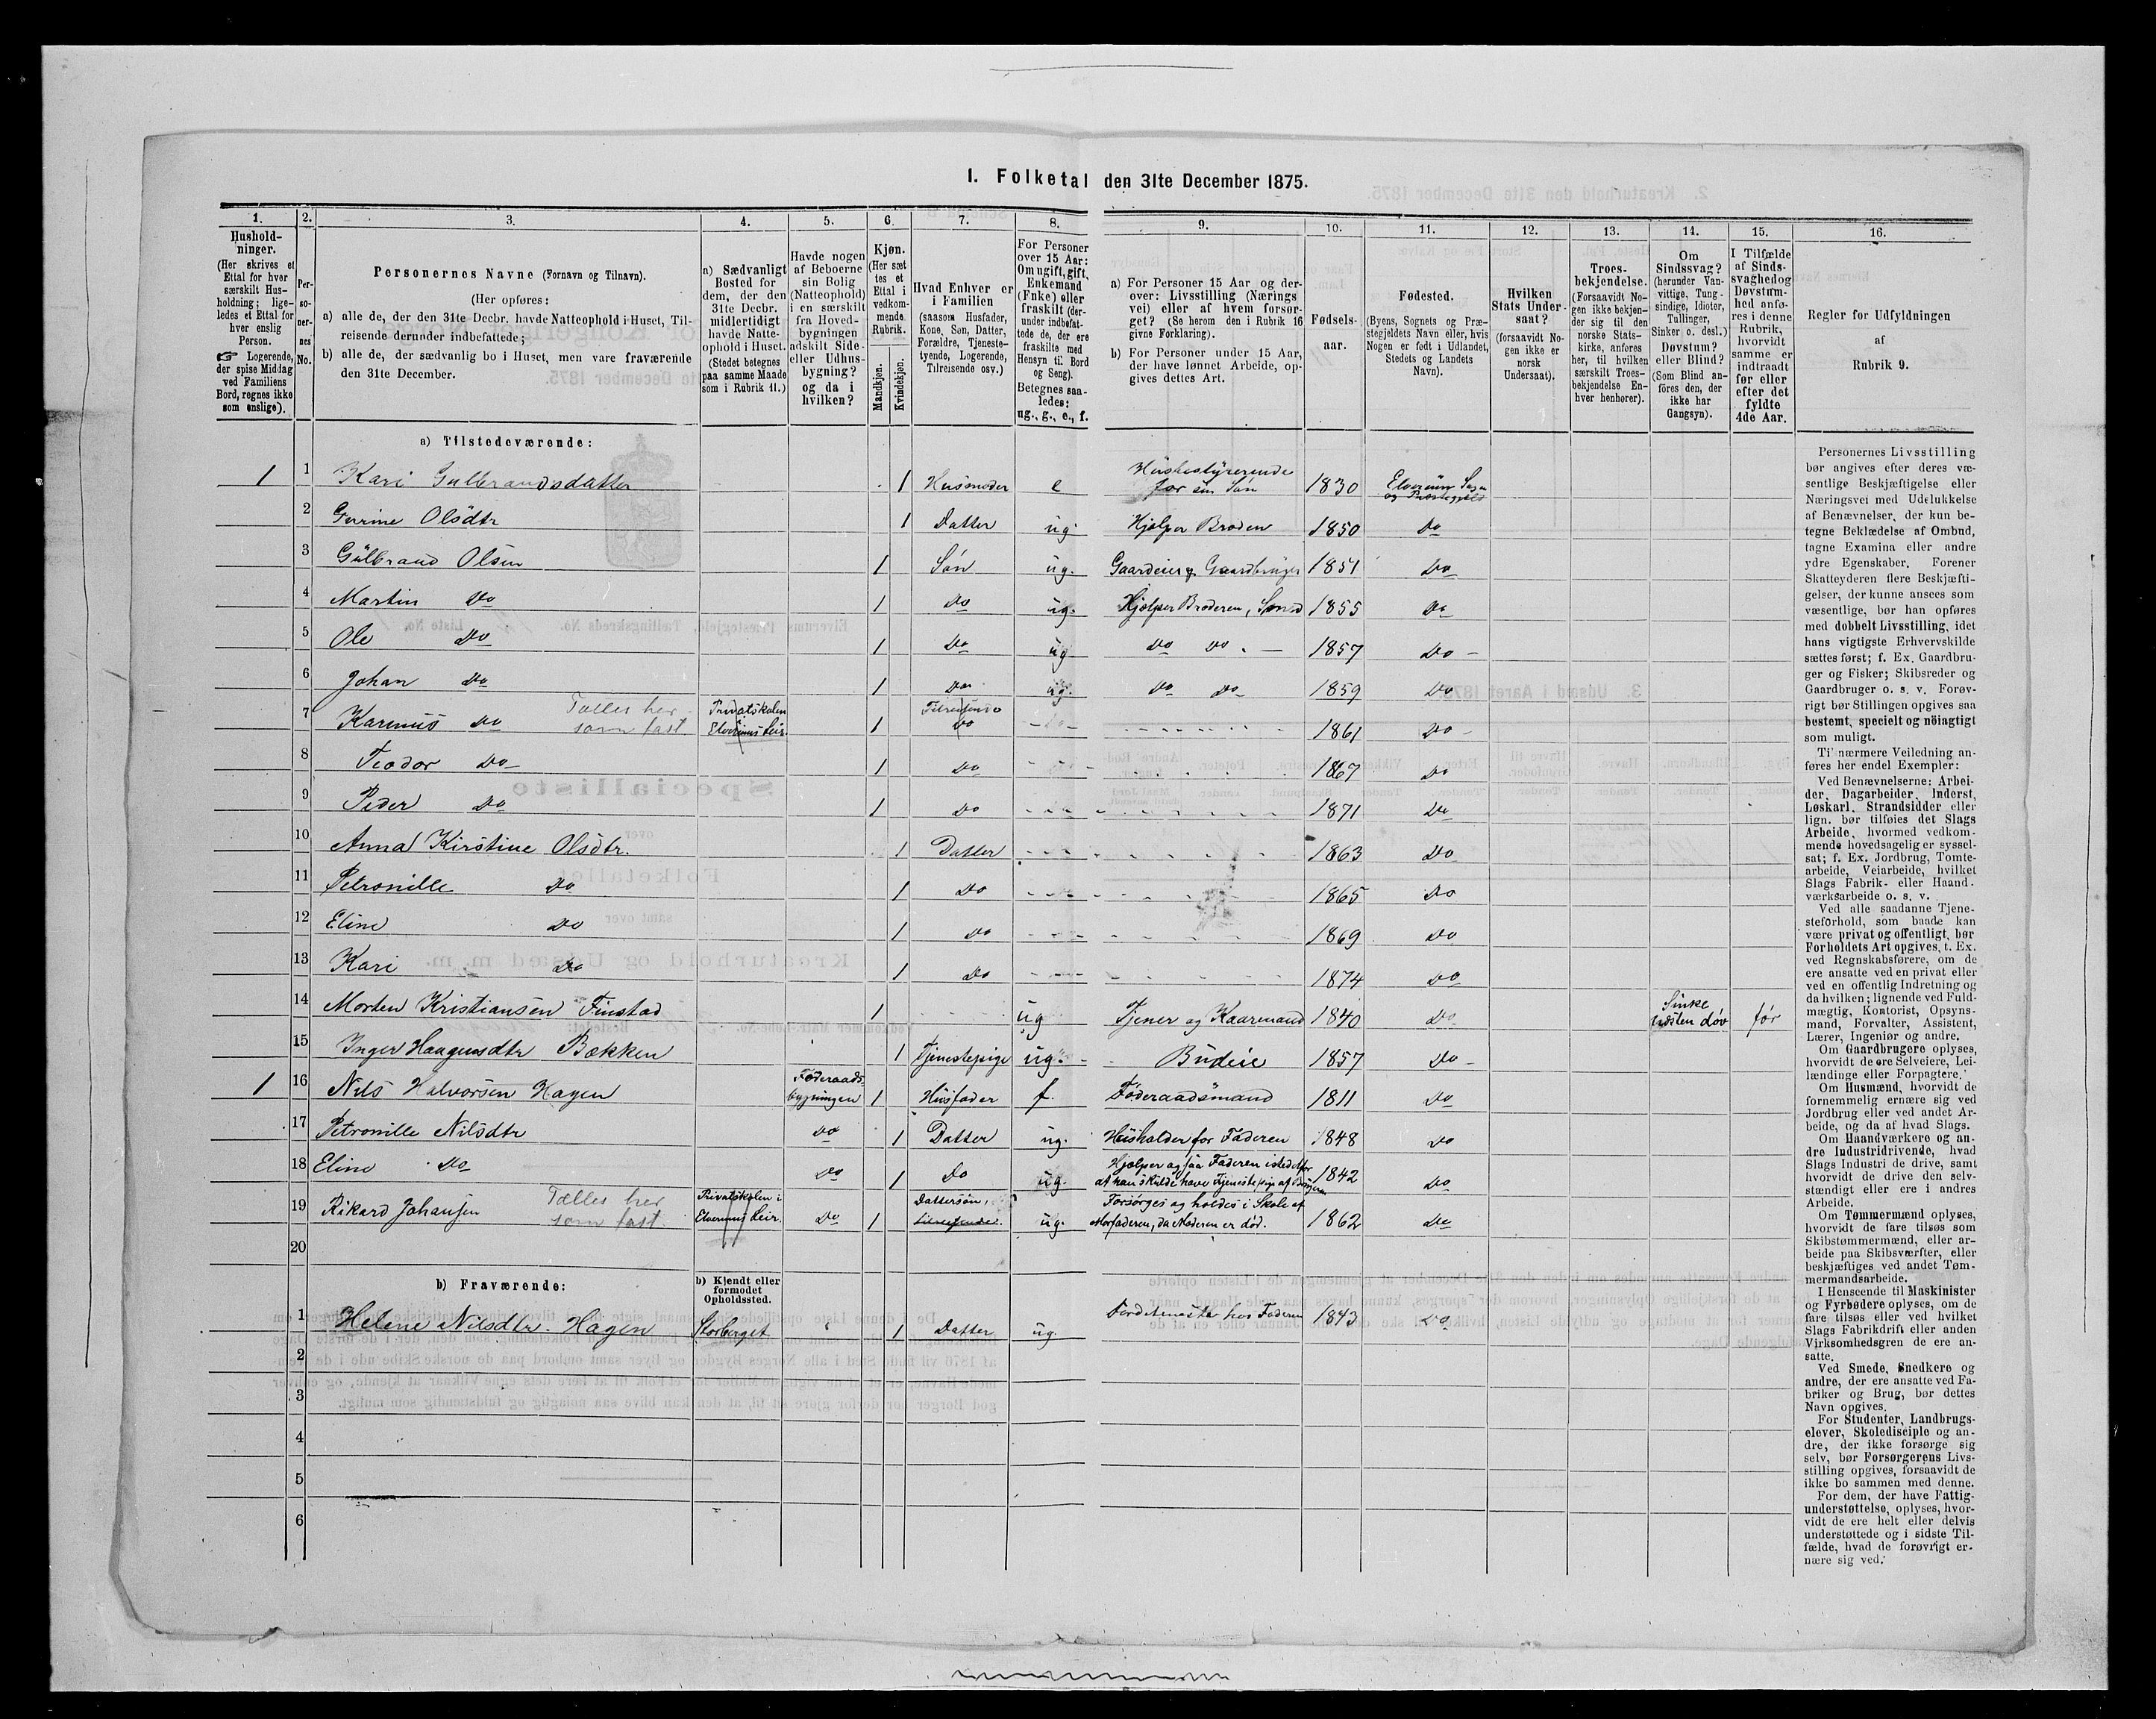 1. Folketal den 31te December 1875.
1.
Hushold-
ninger.
(Her skrives et
Ettal for hver
særskilt Hus-
holdning; lige-
ledes et Ettal for
hver enslig
Person.
☞ Logerende,
der spise Middag
ved Familiens
Bord, regnes ikke
som enslige).
2.
Per-
so-
ner-
nes
No.
3.
Personernes Navne (Fornavn og Tilnavn).
(Her opføres:
a) alle de, der den 31te Decbr. havde Natteophold i Huset, Til-
reisende derunder indbefattede;
b) alle de, der sædvanlig bo i Huset, men vare fraværende
den 31te December.
4.
a) Sædvanligt
Bosted for
dem, der den
31te Decbr.
midlertidigt
havde Natte-
ophold i Huset.
(Stedet betegnes
paa samme Maade
som i Rubrik 11.)
5.
Havde nogen
af Beboerne
sin Bolig
(Natteophold)
i en særskilt
fra Hoved-
bygningen
adskilt Side-
eller Udhus-
bygning?
og da i
hvilken?
6.
Kjøn.
(Her sæt-
tes et
Ettal i
vedkom-
mende
Rubrik.
Mandkjøn.
Kvindekjøn.
7.
Hvad Enhver er
i Familien
(saasom Husfader,
Kone, Søn, Datter,
Forældre, Tjeneste-
tyende, Logerende,
Tilreisende osv.)
8.
For Personer
over 15 Aar:
Om ugift, gift,
Enkemand
(Enke) eller
fraskilt (der-
under indbefat-
tede de, der ere
fraskilte med
Hensyn til Bord
og Seng).
Betegnes saa-
ledes:
ug., g., e., f.
9.
a) For Personer 15 Aar og der-
over: Livsstilling (Nærings
vei) eller af hvem forsør-
get? (Se herom den i Rubrik 16
givne Forklaring).
b) For Personer under 15 Aar,
der have lønnet Arbeide, op-
gives dettes Art.
10.
Fødsels-
aar.
11.
Fødested.
(Byens, Sognets og Præ-
stegjeldets Navn eller, hvis
Nogen er født i Udlandet,
Stedets og Landets
Navn).
12.
Hvilken
Stats Under-
saat?
(forsaavidt No-
gen ikke er
norsk
Undersaat).
13.
Troes-
bekjendelse.
(Forsaavidt No-
gen ikke bekjen-
der sig til den
norske Stats-
kirke, anføres
her, til hvilken
særskilt Troes-
bekjendelse En-
hver henhører).
14.
Om
Sindssvag?
(herunder Van-
vittige, Tung-
sindige, Idioter,
Tullinger,
Sinker o. desl.)
Døvstum?
eller Blind?
(Som Blind an-
føres den, der
ikke har
Gangsyn).
15.
I Tilfælde
af Sinds-
svaghed og
Døvstum-
hed anfø-
res i denne
Rubrik,
hvorvidt
samme er
indtraadt
før eller
efter det
fyldte
4de Aar.
16.
Regler for Udfyldningen
af
Rubrik 9.
a) Tilstedeværende:
1 1 Kari Gulbrandsdatter 1 Husmoder e Husbestyrerende for sin Søn 1830 Elverum Sogn og Præstegjeld
2 Gurine Olsdtr 1 Datter ug. Hjælper Broden 1850 Do
3 Gulbrand Olsen 1 Søn ug. Gaardeier og Gaardbruger 1851 Do
4 Martin Do 1 Do ug. Hjælper Broderen, 1855 Do
5 Ole Do 1 Do ug Do Do 1857 Do
6 Johan Do 1 Do ug. Do Do 1859 Do
7 Karenus Do Tælles her som fast Privatskolen Elverums Leir. 1 Tilreisende Do 1861 Do
8 Teodor Do 1 Do 1867 Do
9 Peder Do 1 Do 1871 Do
10 Anna Kirstine Olsdtr. 1 Datter 1863 Do
11 Petronille Do 1 Do 1865 Do
12 Eline Do 1 Do 1869 Do
13 Kari Do 1 Do 1874 Do
14 Morten Kristiansen Finstad 1 ug Tjener og Kaaremand 1840 Do Sinke næsten døv før
15 Inger Haagensdtr Bækken 1 Tjenestepige ug. Budeie 1857 Do
1 16 Nils Halvorsen Hagen Føderaads- bygningen 1 Husfader f. Føderaadsmand 1811 Do
17 Petronille Nilsdtr Do 1 Datter ug. Husholder for Faderen 1848 Do
18 Eline Do Do 1 Do ug. Hjælper ogsaa Faderen istedetfor at han skulde have Tjenestepige 1842 Do
19 Rikard Johansen Tælles her som fast. Privatskolen i Elverums Leir. Do 1 Dattersøn, tilreisende ug. Forsørges og holdes i Skole af Morfaderen, da Moderen er død. 1862 Do
20
b) Fraværende:
b) Kjendt eller
formodet
Opholdssted.
1 Helene Nilsdtr. Hagen Storberget 1 Datter ug. hos Faderen 1843 Do
2
3
4
5
6
Personernes Livsstilling
bør angives efter deres væ-
sentlige Beskjæftigelse eller
Næringsvei med Udelukkelse
af Benævnelser, der kun be-
tegne Beklædelse af Ombud,
tagne Examina eller andre
ydre Egenskaber. Forener
Skatteyderen flere Beskjæfti-
gelser, der kunne ansees som
væsentlige, bør han opføres
med dobbelt Livsstilling, idet
hans vigtigste Erhvervskilde
sættes først; f. Ex. Gaardbru-
ger og Fisker; Skibsreder og
Gaardbruger o. s. v. Forøv-
rigt bør Stillingen opgives saa
bestemt, specielt og nöiagtigt
som muligt.
Til nærmere Veiledning an-
føres her endel Exempler:
Ved Benævnelserne: Arbei-
der, Dagarbeider, Inderst,
Løskarl, Strandsidder eller
lign. bør tilføies det Slags
Arbeide, hvormed vedkom-
mende hovedsagelig er syssel-
sat; f. Ex. Jordbrug, Tomte-
arbeide, Veiarbeide, hvilket
Slags Fabrik- eller Haand-
værksarbeide o. s. v.
Ved alle saadanne Tjene-
steforhold, som baade kan
være privat og offentligt, bør
Forholdets Art opgives, t. Ex.
ved Regnskabsførere, om de
ere ansatte ved en privat eller
ved en offentlig Indretning og
da hvilken; lignende ved Fuld-
mægtig, Kontorist, Opsyns-
mand, Forvalter, Assistent,
Lærer, Ingeniør og andre.
Om Gaardbrugere oplyses,
hvorvidt de ere Selveiere, Lei-
lændinge eller Forpagtere.
Om Husmænd, hvorvidt de
fornemmelig ernære sig ved
Jordbrug eller ved andet Ar-
beide, og da af hvad Slags.
Om Haandværkere og an-
dre Industridrivende, hvad
Slags Industri de drive, samt
hvorvidt de drive den selv-
stændigt eller ere i andres
Arbeide.
Om Tømmermænd oplyses,
hvorvidt de fare tilsøs som
Skibstømmermænd, eller ar-
beide paa Skibsværfter, eller
beskjæftiges ved andet Tøm-
mermandsarbeide.
I Henseende til Maskinister
og Fyrbødere oplyses, om de
fare tilsøs eller ved hvilket
Slags Fabrikdrift eller anden
Virksomhedsgren de ere an-
satte.
Ved Smede, Snedkere og
andre, der ere ansatte ved Fa-
briker og Brug, bør dettes
Navn opgives.
For Studenter, Landbrugs-
elever, Skoledisciple og an-
dre, der ikke forsørge sig
selv, bør Forsørgerens Livs-
stilling opgives, forsaavidt de
ikke bo sammen med denne.
For dem, der have Fattig-
understøttelse, oplyses, hvor-
vidt de ere helt eller delvis
understøttede og i sidste Til-
fælde, hvad de forøvrigt er-
nære sig ved.